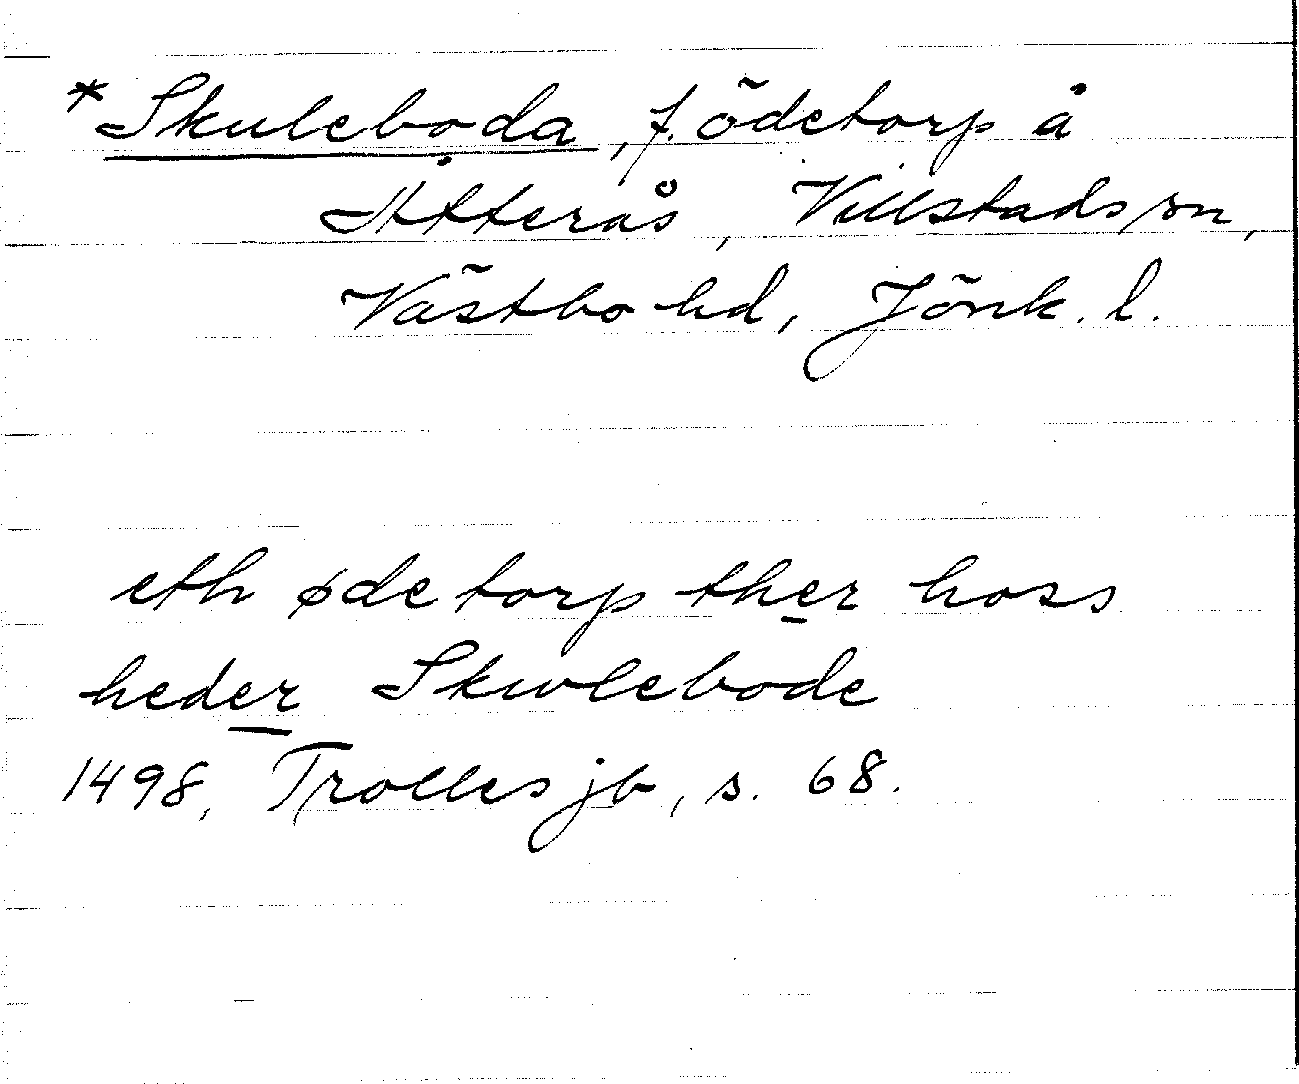 *Skuleboda, f. ödetorp å
Åtterås, Villstads sn,
Västbo hd, Jönk. l.
eth ødetorp ther hoss
heder Skwlebode
1498, Trolles jb, s. 68.